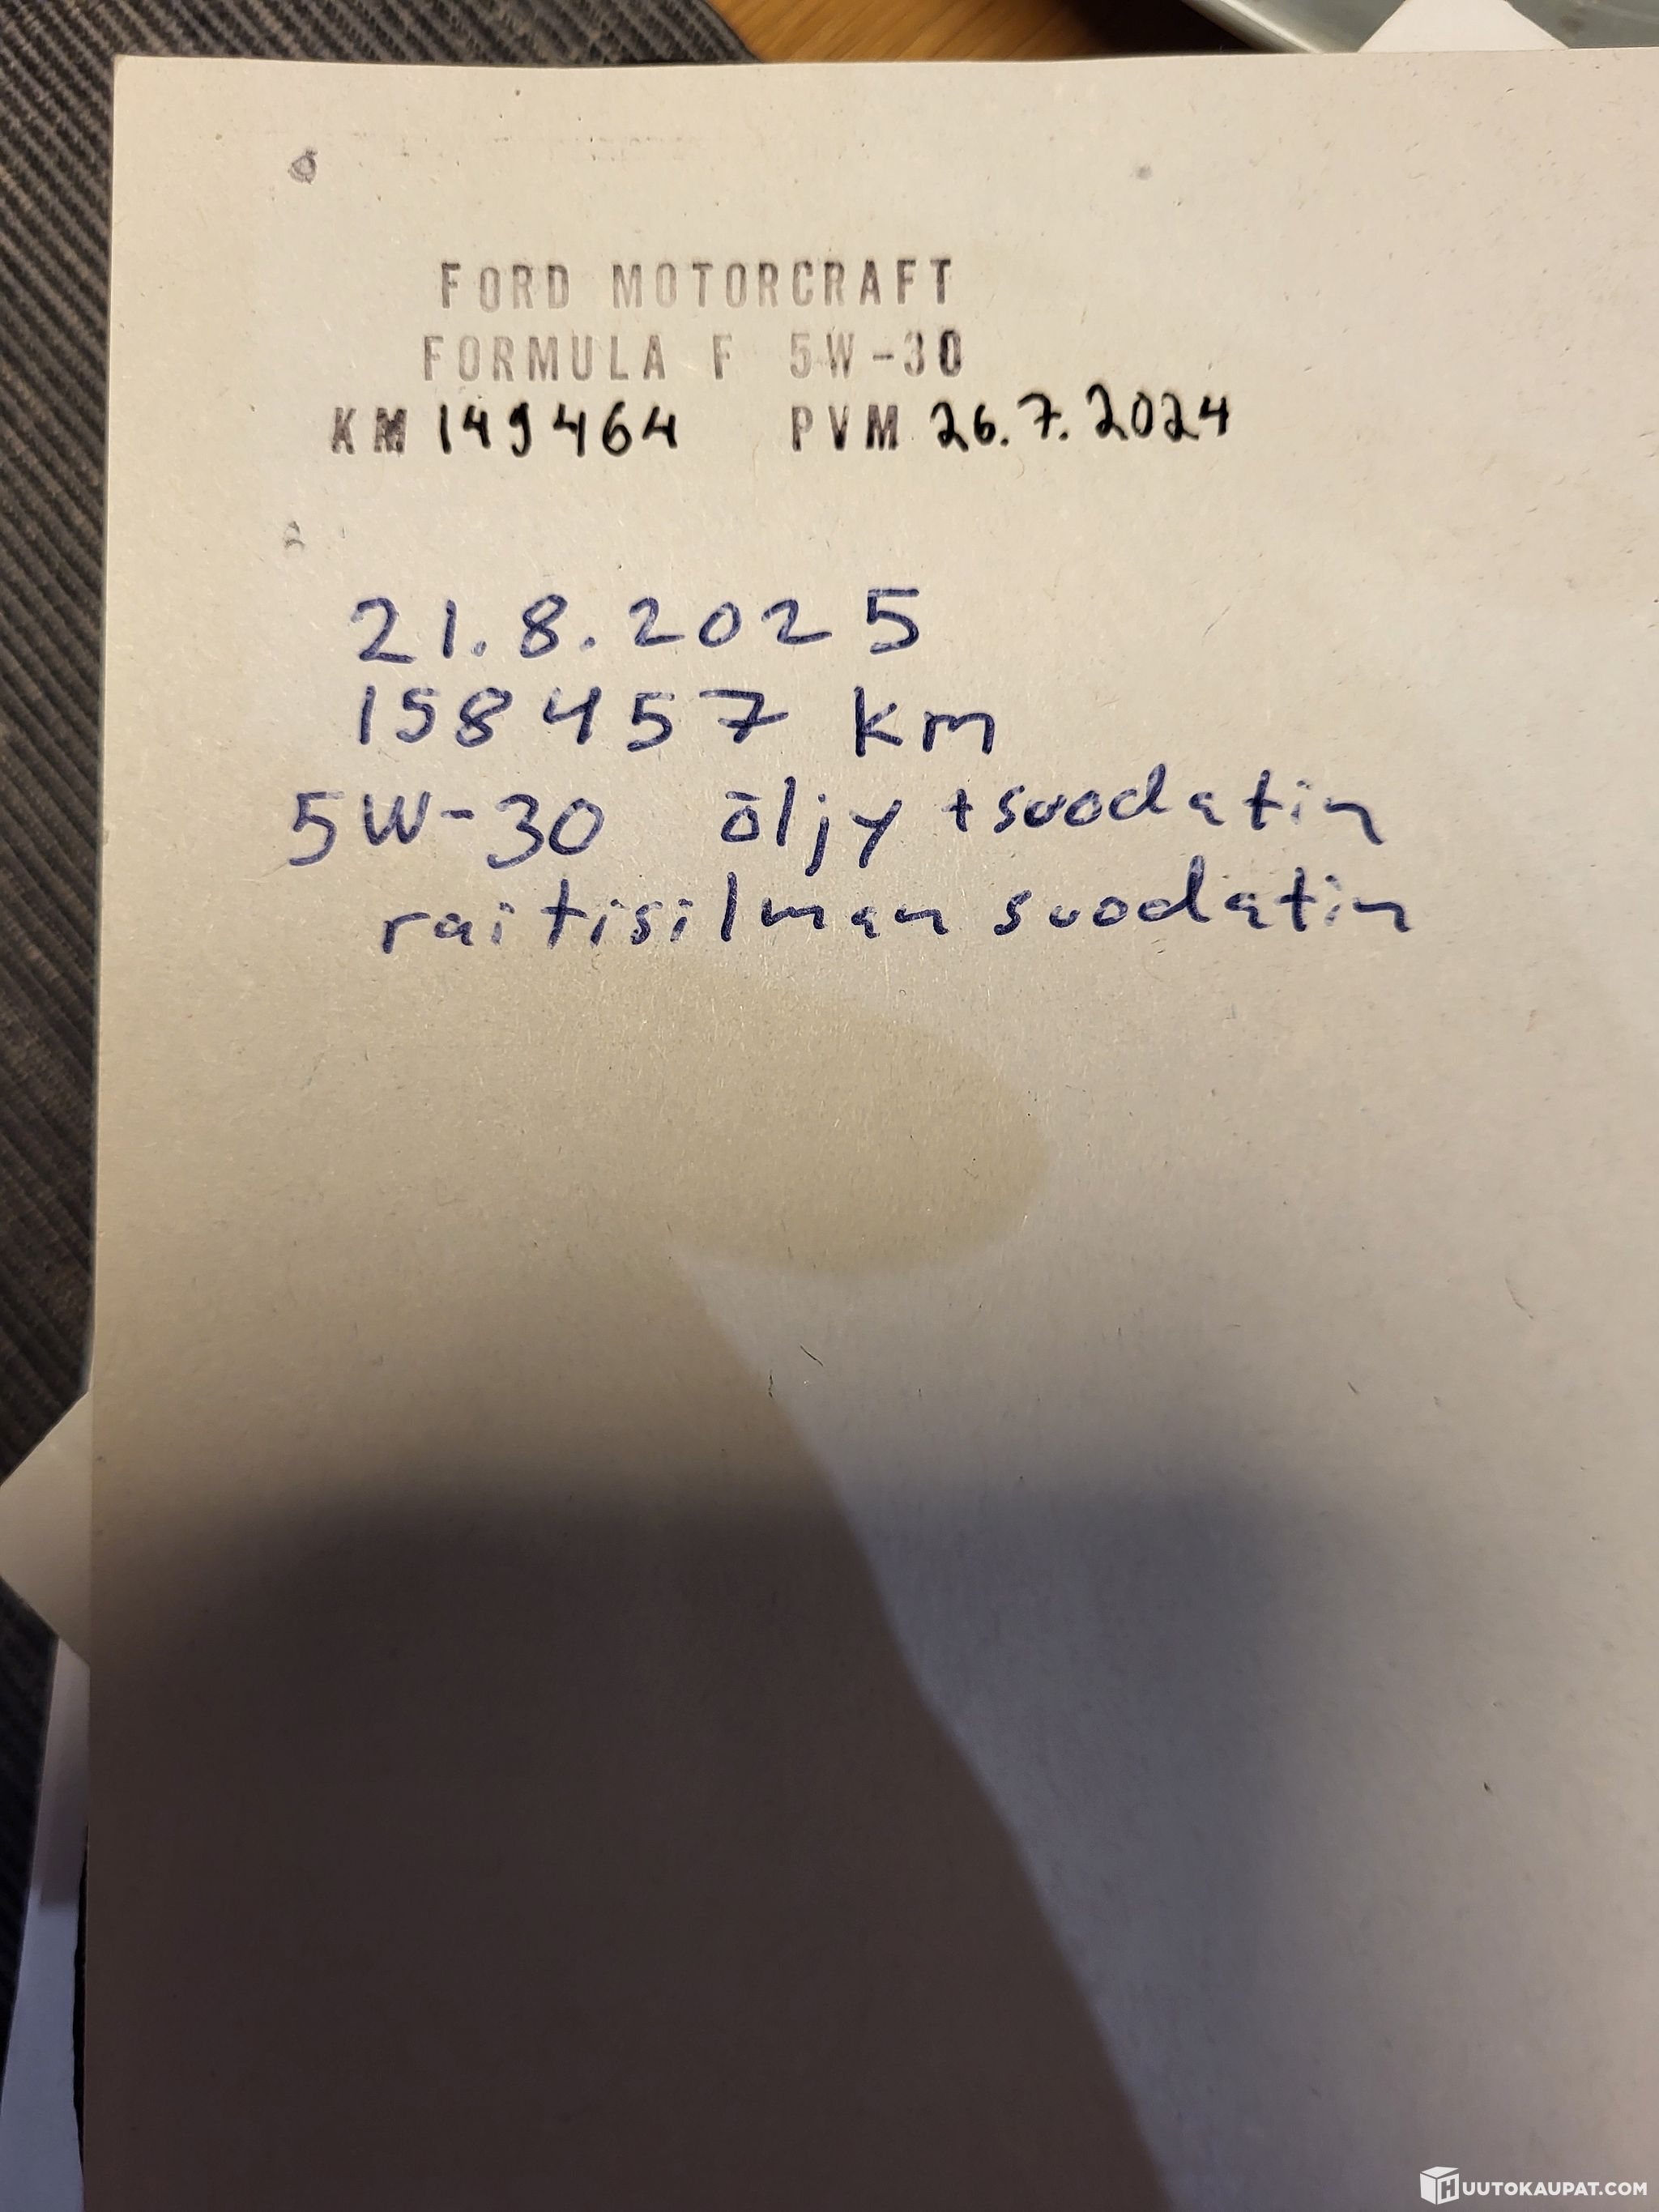 FORD MOTORCRAFT
FORMULA F 5W-30
KM 149464 PVM 26.7.2024
21.8.2025
158457 km
5W-30 öljy +suodatin
raitisilman suodatin
HUUTOKAUPAT.COM